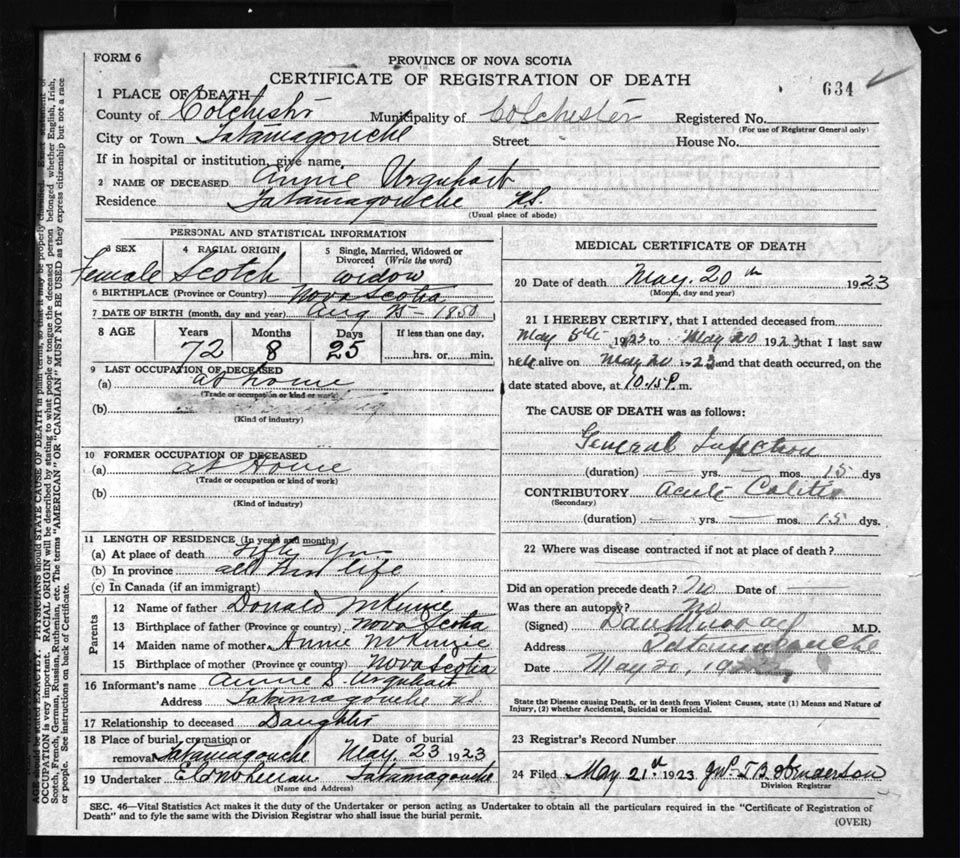 FORM 6
PROVINCE OF NOVA SCOTIA
CERTIFICATE OF REGISTRATION OF DEATH
634
1 PLACE OF DEATH
County of Colchester Municipality of Colchester Registered No.
(For use of Registrar General only)
City or Town Tatamagouche Street House No.
If in hospital or institution, give name
2 NAME OF DECEASED Annie Urquhart
Residence Tatamagouche N.S.
(Usual place of abode)
PERSONAL AND STATISTICAL INFORMATION
3 SEX 4 RACIAL ORIGIN 5 Single, Married, Widowed or Divorced (Write the word)
Female Scotch widow
6 BIRTHPLACE (Province or Country) Nova Scotia
7 DATE OF BIRTH (month, day and year) Aug 25 - 1850
8 AGE Years Months Days If less than one day,
72 8 25 hrs. or min.
9 LAST OCCUPATION OF DECEASED
(a) at home
(Trade or occupation or kind of work)
(b)
(Kind of industry)
10 FORMER OCCUPATION OF DECEASED
(a) at Home
(Trade or occupation or kind of work)
(b)
(Kind of industry)
11 LENGTH OF RESIDENCE (In years and months)
(a) At place of death Fifty Yrs
(b) In province all her life
(c) In Canada (if an immigrant)
Parents
12 Name of father Donald McKenzie
13 Birthplace of father (Province or country) Nova Scotia
14 Maiden name of mother Annie McKenzie
15 Birthplace of mother (Province or country) Nova Scotia
16 Informant's name Annie S. Urquhart
Address Tatamagouche N.S.
17 Relationship to deceased Daughter
18 Place of burial, cremation or removal Tatamagouche Date of burial May 23 1923
19 Undertaker Tatamagouche
(Name and Address)
MEDICAL CERTIFICATE OF DEATH
20 Date of death May. 20th 1923
(Month, day and year)
21 I HEREBY CERTIFY, that I attended deceased from
May 5th 1923 to May 20 1923 that I last saw
her alive on May 20 1923 and that death occurred, on the
date stated above, at 10.15 P. m.
The CAUSE OF DEATH was as follows:
General Infection
(duration) yrs. mos. 15 dys
CONTRIBUTORY Acute Colitis
(Secondary)
(duration) yrs. mos. 15 dys.
22 Where was disease contracted if not at place of death?
Did an operation precede death? No Date of
Was there an autopsy? No
(Signed) Dan Murray M.D.
Address Tatamagouche
Date May 20, 19
State the Disease causing Death, or in death from Violent Causes, state (1) Means and Nature of
Injury, (2) whether Accidental, Suicidal or Homicidal.
23 Registrar's Record Number
24 Filed May 21st 1923 Henderson
Division Registrar
SEC. 46—Vital Statistics Act makes it the duty of the Undertaker or person acting as Undertaker to obtain all the particulars required in the "Certificate of Registration of
Death" and to fyle the same with the Division Registrar who shall issue the burial permit.
(OVER)
PHYSICIANS should STATE CAUSE OF DEATH in plain terms, so that it may be properly classified. Exact statement of
OCCUPATION is very important. RACIAL ORIGIN will be described by stating to what people or tongue the deceased person belonged whether English, Irish,
Scotch, French, German, Russian, Ruthenian, etc. The terms "AMERICAN" OR "CANADIAN" MUST NOT BE USED as they express citizenship but not a race
or people. See instructions on back of Certificate.